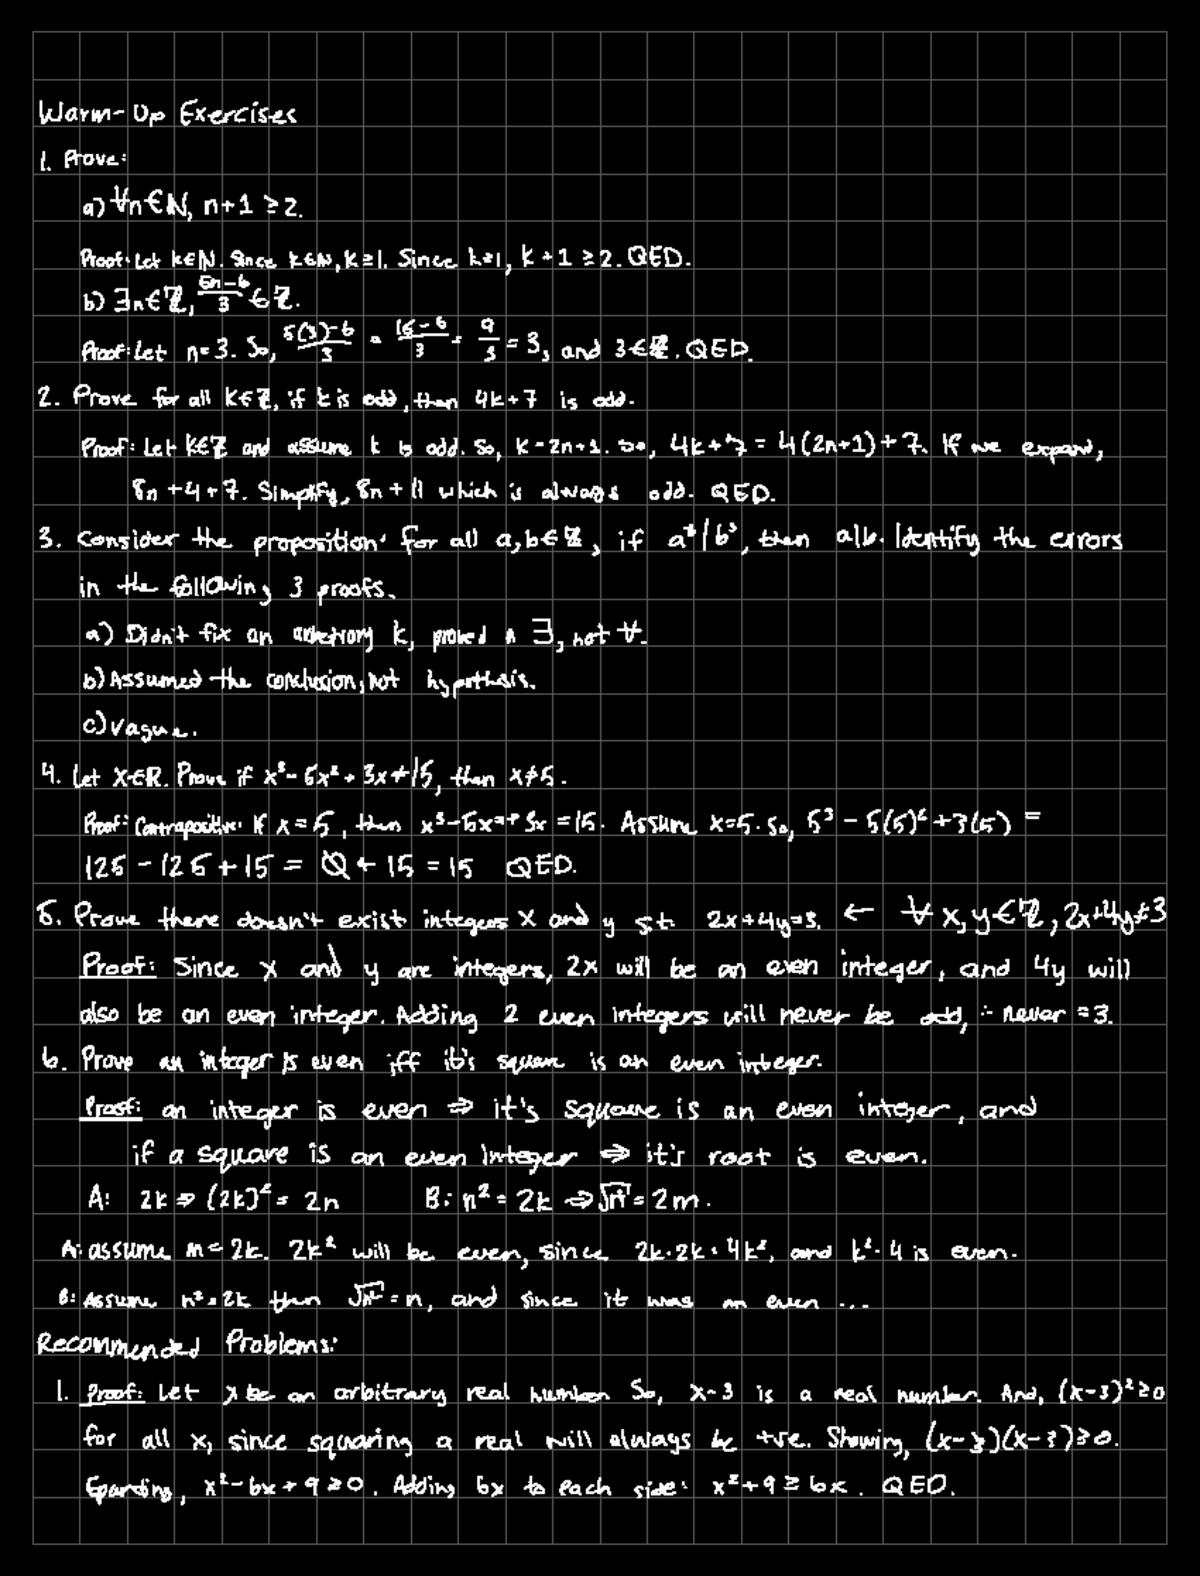 Warm-Up Exercises
1. Prove:
a) ∀n∈ℕ, n+1 ≥2.
Proof: Let k∈ℕ. Since k∈ℕ, k≥1. Since k≥1, k+1 ≥2. QED.
b) ∃n∈ℤ, (5n-6)/3 ∈ℤ.
Proof: Let n=3. So, (5(3)-6)/3 = (15-6)/3 = 9/3 = 3, and 3∈ℤ. QED.
2. Prove for all k∈ℤ, if k is odd, then 4k+7 is odd.
Proof: Let k∈ℤ and assume k is odd. So, k=2n+1. So, 4k+7 = 4(2n+1)+7. If we expand,
8n+4+7. Simplify, 8n+11 which is always odd. QED.
3. Consider the proposition: for all a,b∈ℤ, if a³|b³, then a|b. Identify the errors
in the following 3 proofs.
a) Didn't fix an arbitrary k, proved a ∃, not ∀.
b) Assumed the conclusion, not hypothesis.
c) Vague.
4. Let x∈ℝ. Prove if x³-5x²+3x≠15, then x≠5.
Proof: Contrapositive: If x=5, then x³-5x²+3x=15. Assume x=5. So, 5³-5(5)²+3(5) =
125-125+15 = 0+15 = 15 QED.
5. Prove there doesn't exist integers x and y s.t. 2x+4y=3. ← ∀x,y∈ℤ, 2x+4y≠3
Proof: Since x and y are integers, 2x will be an even integer, and 4y will
also be an even integer. Adding 2 even integers will never be odd, ∴ never =3.
6. Prove an integer is even iff it's square is an even integer.
Proof: an integer is even ⇒ it's square is an even integer, and
if a square is an even integer ⇒ it's root is even.
A: 2k ⇒ (2k)² = 2n B: n² = 2k ⇒ √n² = 2m.
A: assume m=2k. 2k² will be even, since 2k·2k=4k², and k²·4 is even.
B: Assume n²=2k then √n² = n, and since it was an even ...
Recommended Problems:
1. Proof: Let x be an arbitrary real number. So, x-3 is a real number. And, (x-3)²≥0
for all x, since squaring a real will always be +ve. Showing, (x-3)(x-3)≥0.
Expanding, x²-6x+9≥0. Adding 6x to each side: x²+9≥6x. QED.